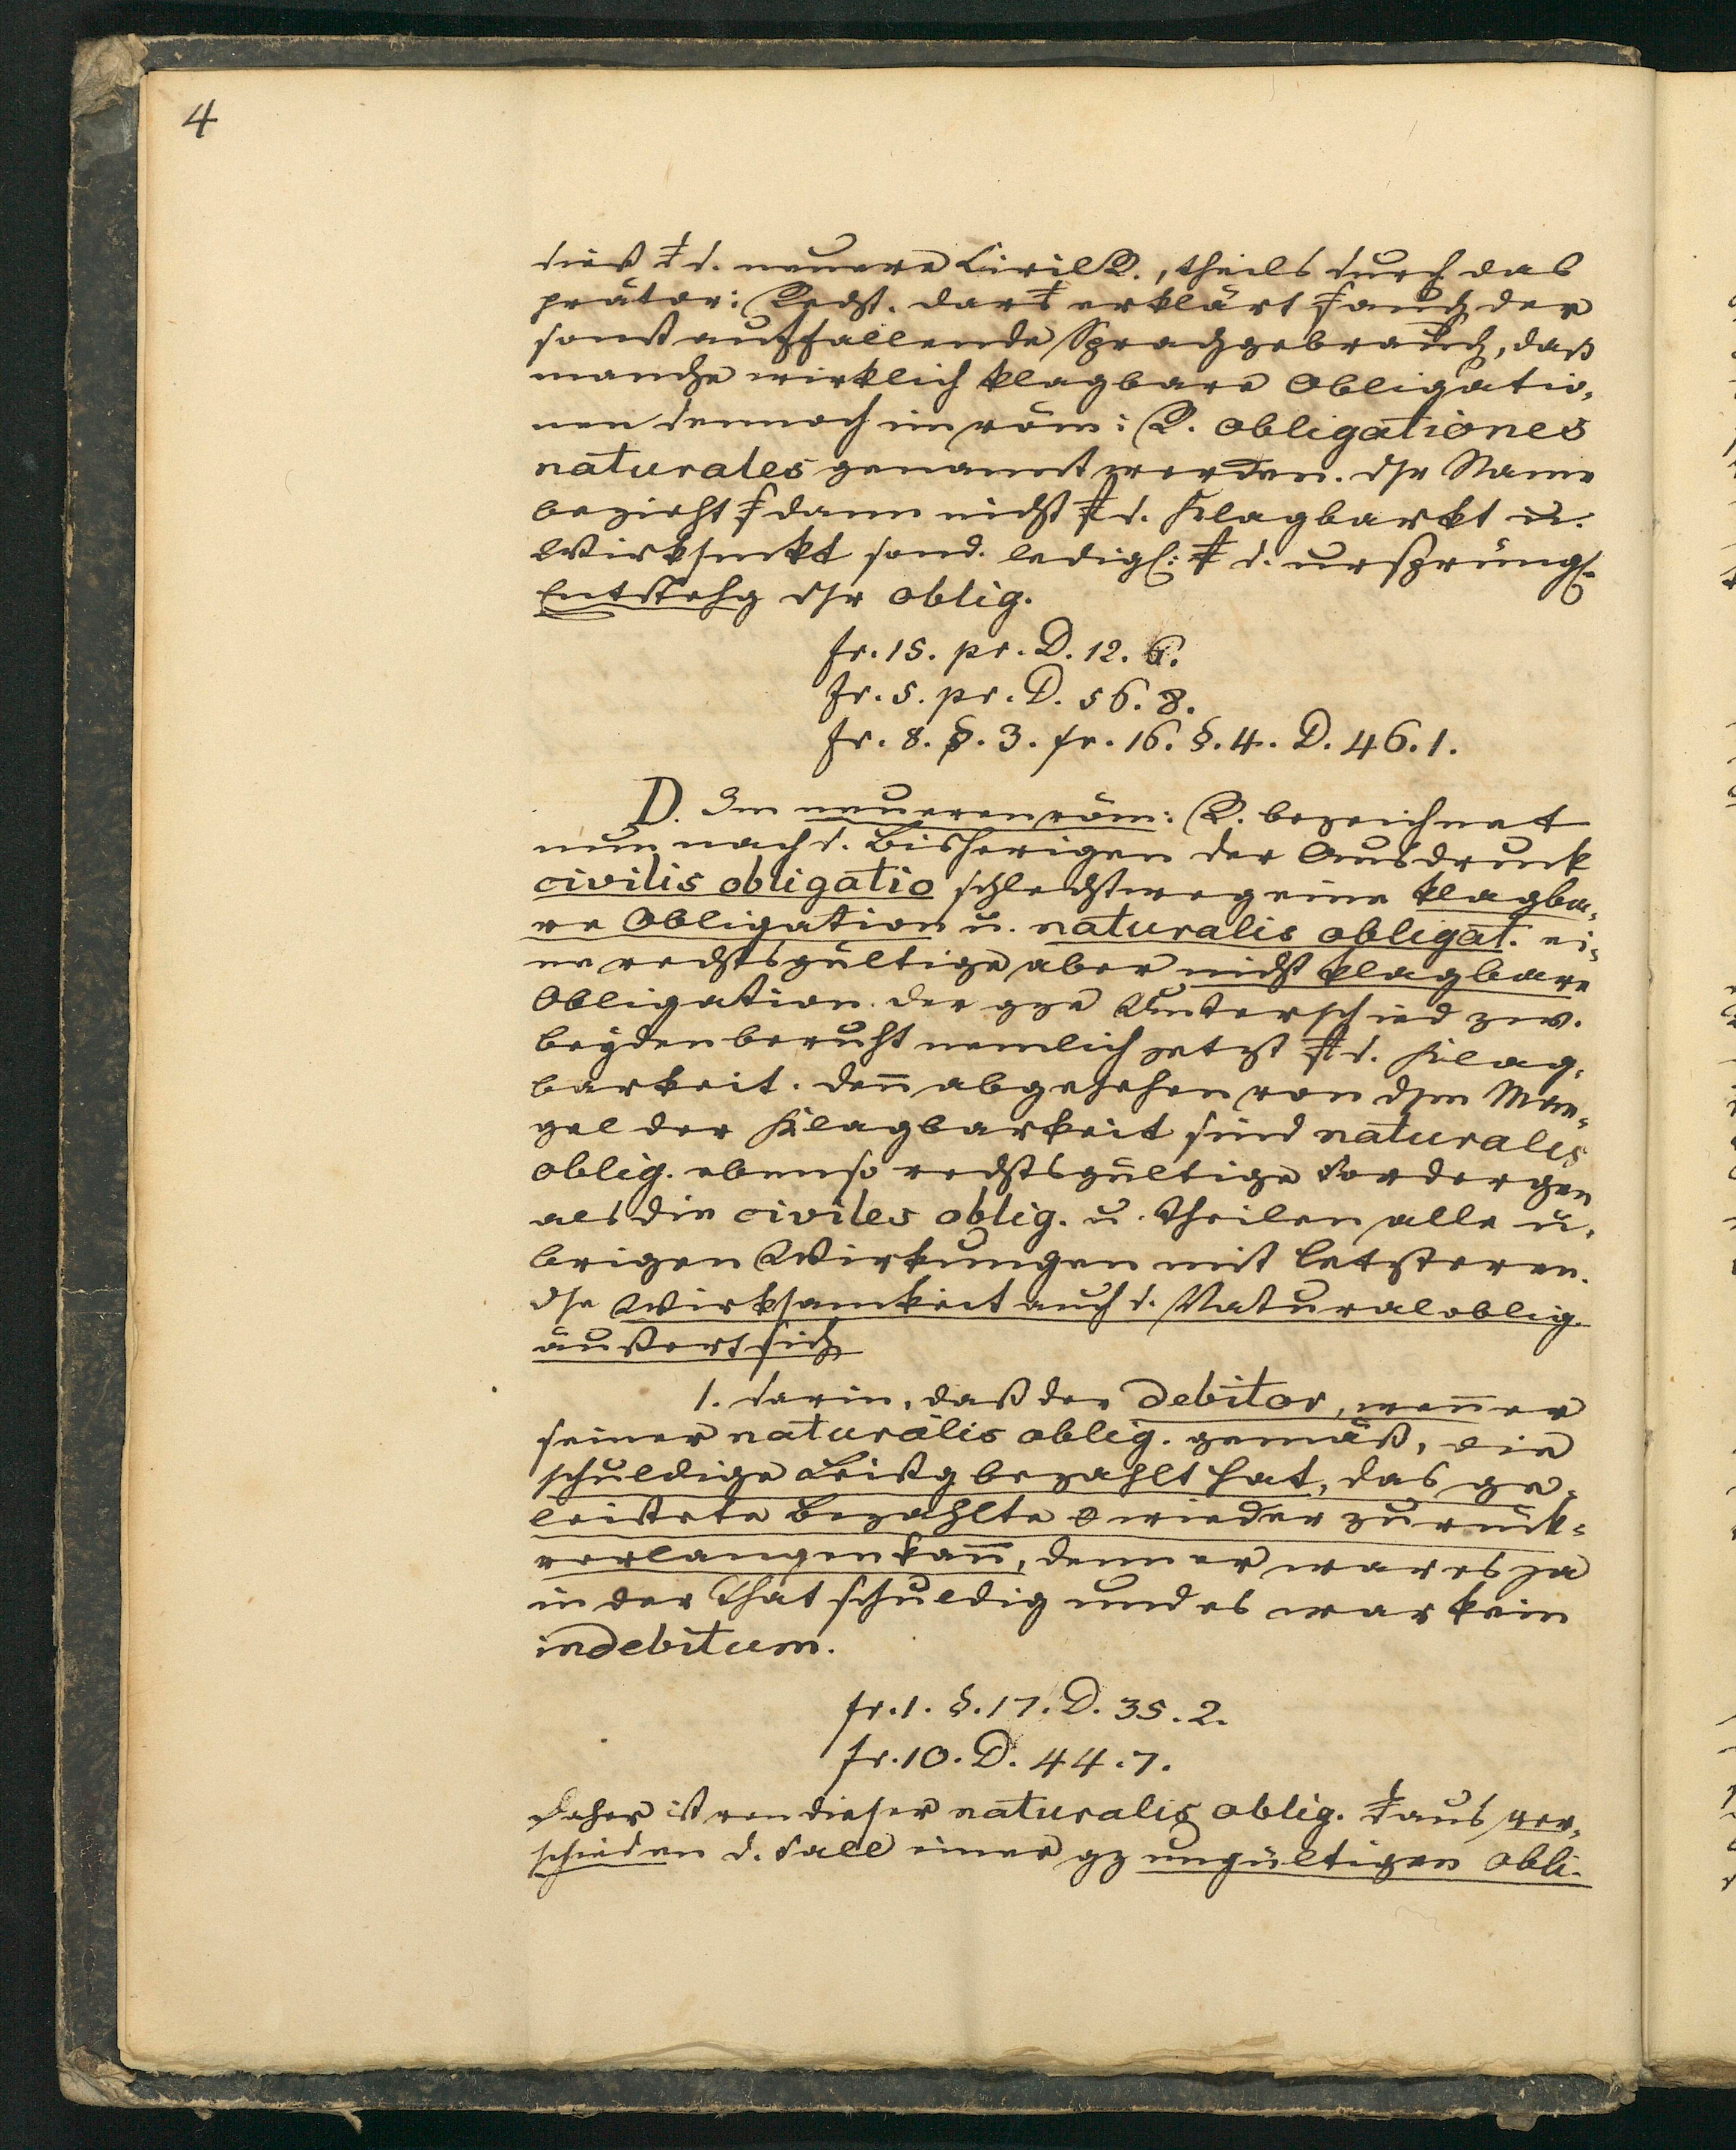 4
dieß d. neuere Civil R., theils durch das
prätor: Recht. dar erklärt auch der
sonst auffallende Sprachgebrauch, daß
manche wirklich klagbare Obligatio-
nen dennoch im röm: R. obligationes
naturales genannt werden. dsr Name
bezieht dann nicht d. Klagbarkt u.
Wirksmkt sond. ledigl: d. ursprüngl.
Entstehg dsr oblig.
fr. 15. pr. D. 12. 6.
fr. 5. pr. D. 56. 8.
fr. 8. §. 3. fr. 16. §. 4. D. 46. 1.
D. Im neueren röm: R. bezeichnet
nun nach d. Bisherigen der Ausdruck
civilis obligatio schlechtweg eine klagba-
re Obligation u. naturalis obligat. ei-
ne rechtsgültige aber nicht klagbare
Obligation. der gze Unterschied zw.
beyden beruht nemlich jetzt d. Klag-
barkeit. den̄ abgesehen von dsm Man-
gel der Klagbarkeit sind naturales
oblig. ebenso rechtsgültige Fordergen
als die civiles oblig. u. theilen alle ü-
brigen Wirkungen mit letzteren.
dse Wirksamkeit auch d. Naturaloblig.
äußert sich
1. darin, daß der debitor, wen̄ er
seiner naturalis oblig. gemäß, die
schuldige Leistg bezahlt hat, das ge-
leistete Bezahlte 0 wieder zurück-
verlangen kan̄, denn er war es ja
in der That schuldig und es war kein
indebitum.
fr. 1. §. 17. D. 35. 2.
fr. 10. D. 44. 7.
Daher ist von dieser naturalis oblig. aus ver-
schieden d. Fall einer gz ungültigen obli-